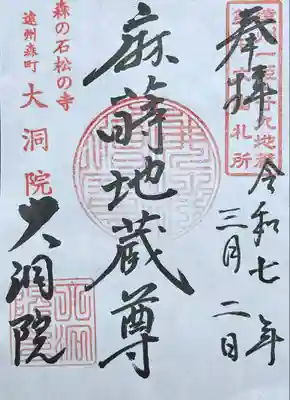 奉拝
令和七年
三月二日
麻蒔地蔵尊
大洞院
森の石松の寺
遠州森町
大洞院